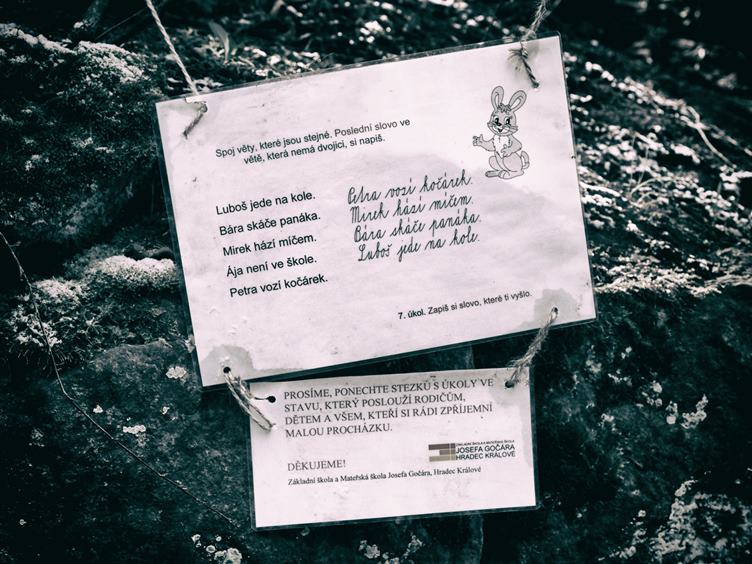 Spoj věty, které jsou stejné. Poslední slovo ve
větě, která nemá dvojici, si napiš.
Luboš jede na kole.
Bára skáče panáka.
Mirek hází míčem.
Ája není ve škole.
Petra vozí kočárek.
Petra vozí kočárek.
Mirek hází míčem.
Bára skáče panáka.
Luboš jede na kole.
7. úkol. Zapiš si slovo, které ti vyšlo.
PROSÍME, PONECHTE STEZKU S ÚKOLY VE
STAVU, KTERÝ POSLOUŽÍ RODIČŮM,
DĚTEM A VŠEM, KTEŘÍ SI RÁDI ZPŘÍJEMNÍ
MALOU PROCHÁZKU.
ZÁKLADNÍ ŠKOLA A MATEŘSKÁ ŠKOLA
JOSEFA GOČÁRA
HRADEC KRÁLOVÉ
DĚKUJEME!
Základní škola a Mateřská škola Josefa Gočára, Hradec Králové